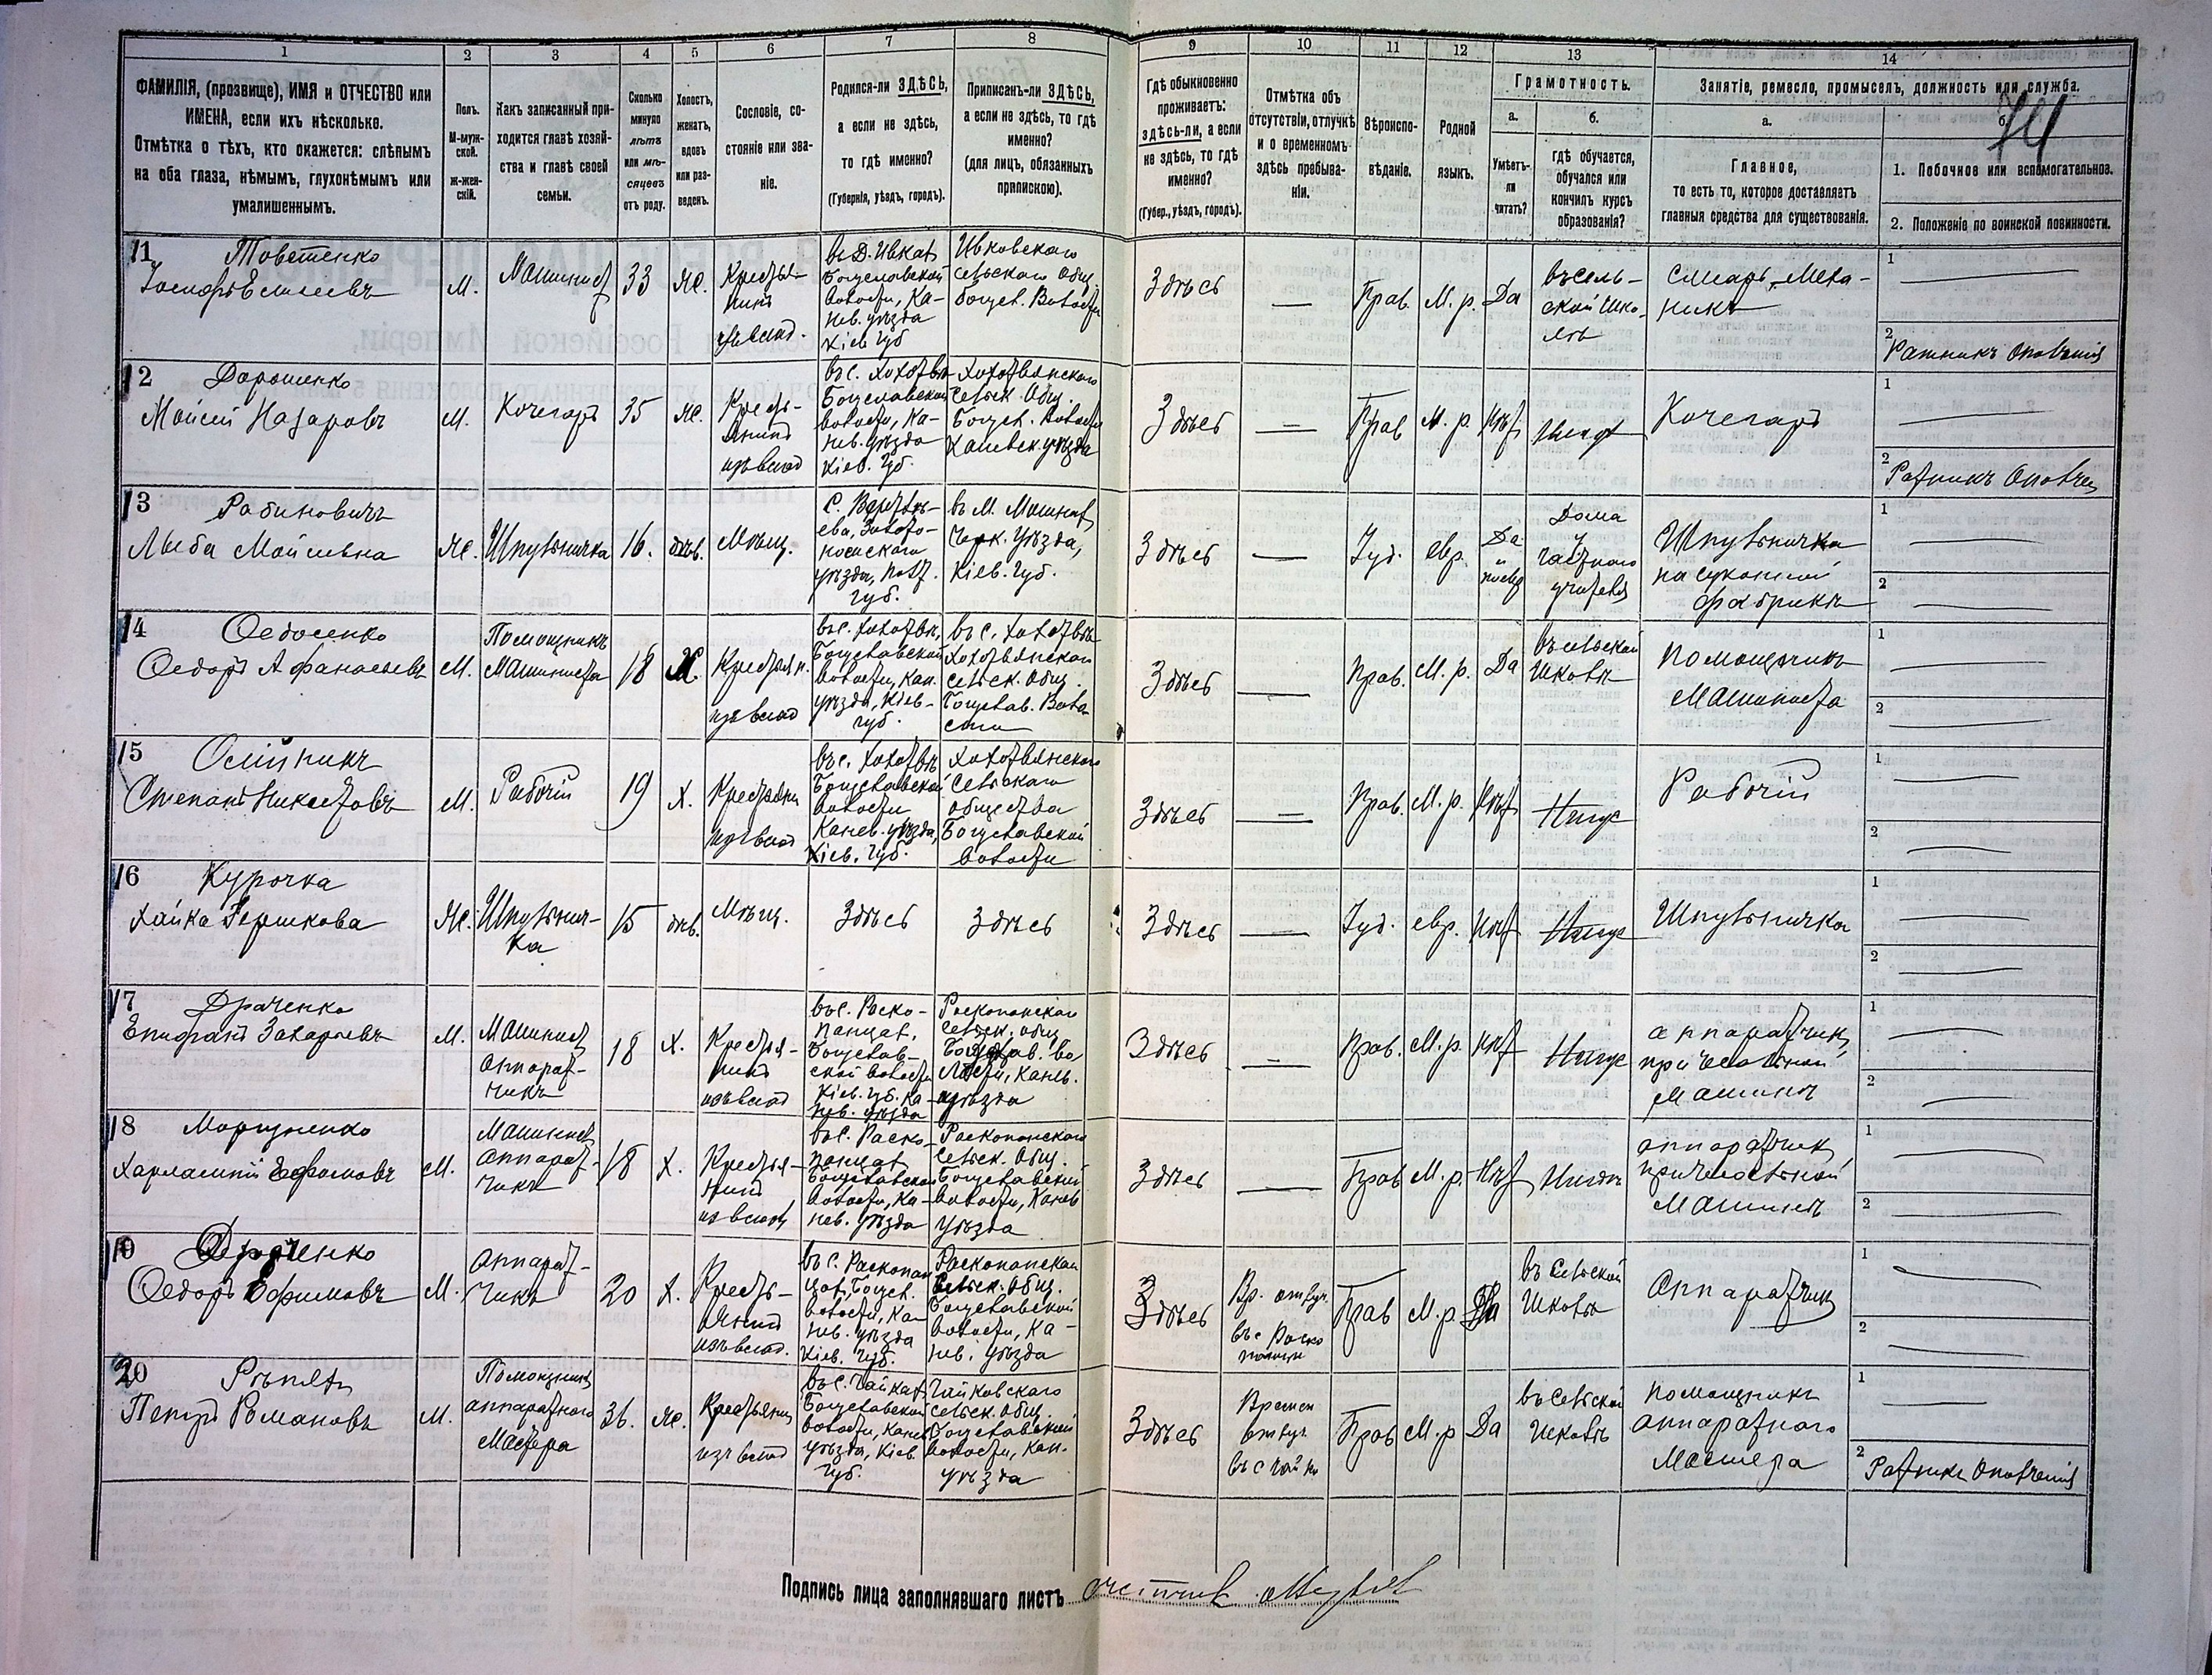 1 2 3 4 5 6 7 8 9 10 11 12 13 14
ФАМИЛІЯ, (прозвище), ИМЯ и ОТЧЕСТВО или
ИМЕНА, если ихъ нѣсколько.
Отмѣтка о тѣхъ, кто окажется: слѣпымъ
на оба глаза, нѣмымъ, глухонѣмымъ или
умалишеннымъ.
Полъ.
М-муж-
ской.
ж-жен-
скій.
Какъ записанный при-
ходится главѣ хозяй-
ства и главѣ своей
семьи.
Сколько
минуло
лѣтъ
или мѣ-
сяцевъ
отъ роду.
Холостъ,
женатъ,
вдовъ
или раз-
веденъ.
Сословіе, со-
стояніе или зва-
ніе.
Родился-ли ЗДѢСЬ,
а если не здѣсь,
то гдѣ именно?
(Губернія, уѣздъ, городъ).
Приписанъ-ли ЗДѢСЬ,
а если не здѣсь, то гдѣ
именно?
(для лицъ, обязанныхъ
припискою).
Гдѣ обыкновенно
проживаетъ:
здѣсь-ли, а если
не здѣсь, то гдѣ
именно?
(Губер., уѣздъ, городъ).
Отмѣтка объ
отсутствіи, отлучкѣ
и о временномъ
здѣсь пребыва-
ніи.
Вѣроиспо-
вѣданіе.
Родной
языкъ.
Грамотность.
а.
Умѣетъ-
ли
читать?
б.
гдѣ обучается,
обучался или
кончилъ курсъ
образованія?
Занятіе, ремесло, промыселъ, должность или служба.
а.
Главное,
то есть то, которое доставляетъ
главныя средства для существованія.
б.
1. Побочное или вспомогательное.
2. Положеніе по воинской повинности.
11
Іосифъ Елисеевъ
М.
Машинист
33
Же.
Кресть-
янинъ
Богуславской
волости, Ка-
нев. уѣзда
Кіев. Губ
Ивковскаго
сельскаго Общ.
Богусл. Волости
Здѣсь
—
Прав.
М. р.
Да
въ сель-
ской Шко-
лѣ
Слесарь, Меха-
никъ
1
2 Ратникъ Ополченія
12 Дорошенко
Мойсей Назаровъ
М.
Кочегаръ
35
Же.
Кресть-
янинъ
изъ влад
Богуславской
волости, Ка-
нев. уѣзда
Кіев. Губ.
Сельск. Общ.
Богусл. Волости
Каневск. уѣзда
Здѣсь
—
Прав
М. р.
Нѣт
Нигд
Кочегаръ
1
2 Ратникъ Ополчен
13 Рабиновичъ
Лыба Мойсевна
Же.
Шпульничка
16.
дѣв.
Мѣщ.
Золото-
ношскаго
уѣзда, Полт.
Губ.
въ М. Мошнах
Черк. Уѣзда,
Кіев. Губ.
Здѣсь
—
Іуд.
евр.
Да
и
Дома
у
частнаго
учителя
Шпульничка
на суконной
фабрикѣ
1
2
14 Федосенко
Федоръ Афанасьевъ
М.
Помощникъ
Машиниста
18
Х.
Крестьян.
изъ влад
Богуславской
волости, Кан.
уѣзда, Кіев-
губ.
сельск. Общ.
Богуслав. Воло-
сти
Здѣсь
—
Прав.
М. р.
Да
въ сельской
Школѣ
Помощникъ
Машиниста
1
2
15 Олійникъ
Степанъ
М.
Рабочій
19
Х.
Крестьянин
изъ влад
Богуславской
волости
Канев. уѣзда,
Кіев. Губ.
Сельскаго
общества
Богуславской
волости
Здѣсь
—
Прав.
М. р.
Нѣт
Нигдѣ
Рабочій
1
2
16 Курочка
Хайка Гершкова
Же.
Шпульнич-
ка
15
дѣв.
Мѣщ.
Здѣсь
Здѣсь
Здѣсь
—
Іуд.
евр.
Нѣт
Нигдѣ
Шпульничка
1
2
17 Драченко
Епифанъ Захарьевъ
М.
Машинист
аппарат-
чикъ
18
Х.
Крестья-
нинъ
изъ влад
въ с. Роско-
панцах,
Богуслав-
ской волости
Кіев. Губ. Ка-
нев. уѣзда
Роскопанскаго
Сельск. общ
Богуслав. во-
лости, Канев.
уѣзда
Здѣсь
—
Прав.
М. р.
Нѣт
Нигдѣ
аппаратчик
при чесальной
Машинѣ
1
2
18 Марцненко
Харлампій Ефимовъ
М.
Машинист
аппарат-
чикъ
18
Х.
Крестья-
нинъ
из влад
въ с. Раско-
панцах
Богуславской
волости, Ка-
нев. уѣзда
Роскопанскаго
Сельск. Общ.
Богуславской
волости, Канев
Уѣзда
Здѣсь
—
Прав
М. р.
Нѣт
Нигдѣ
аппаратчик
при чесальной
Машинѣ
1
2
19
Федоръ Ефимовъ
М.
Аппарат-
чикъ
20
Х.
Кресть-
янинъ
изъ влад.
въ с. Раскопан
цах, Богусл.
волости, Ка-
нев. уѣзда
Кіев. Губ.
Роскопанскаго
Сельск. Общ.
Богуславской
волости, Ка-
нев. уѣзда
Здѣсь
Вр. отлуч.
въ с Роско
Прав
М. р.
Да
въ Сельской
Школѣ
Аппаратчик
1
2
20
Петръ Романовъ
М.
Помощник
аппаратнаго
Мастера
36.
Же.
Крестьянин
изъ влад
въ с. Чайках
Богуславской
волости, Канев
уѣзда, Кіев.
Губ.
Чайковскаго
сельск. Общ
Богуславской
волости, Кан.
уѣзда
Здѣсь
Времен
отлуч.
въ с Чайки
Прав
М. р
Да
въ Сельской
Школѣ
Помощникъ
аппаратнаго
Мастера
1
2 Ратникъ Ополченія
Подпись лица заполнявшаго листъ